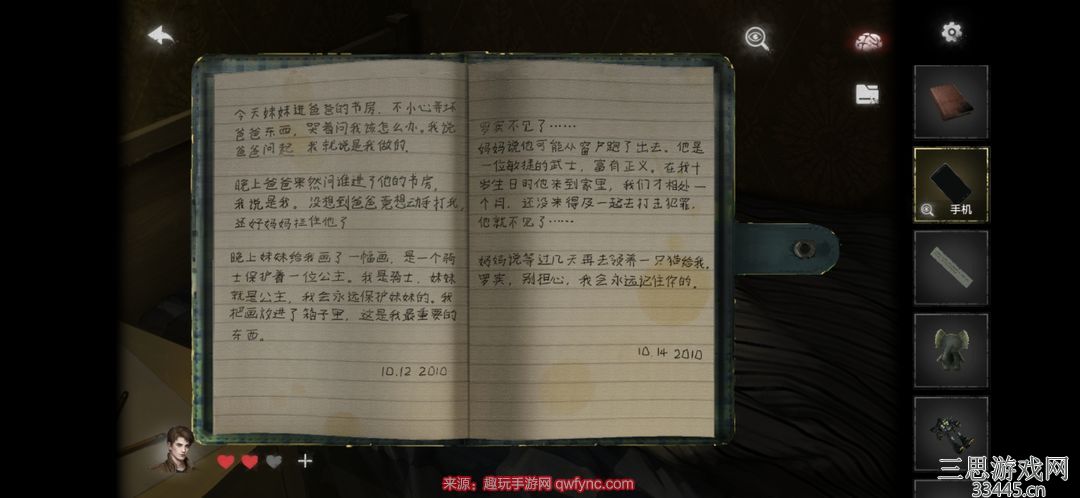 今天妹妹进爸爸的书房，不小心弄坏
爸爸东西，哭着问我该怎么办。我说
爸爸问起，我就说是我做的。
晚上爸爸果然问谁进了他的书房，
我说是我。没想到爸爸竟想动手打我，
还好妈妈拦住他了
晚上妹妹给我画了一幅画，是一个骑
士保护着一位公主。我是骑士，妹妹
就是公主，我会永远保护妹妹的。我
把画放进了箱子里，这是我最重要的
东西。
10.12 2010
罗宾不见了……
妈妈说他可能从窗户跑了出去。他是
一位敏捷的武士，富有正义。在我十
岁生日时他来到家里，我们才相处一
个月，还没来得及一起去打击犯罪，
他就不见了……
妈妈说等过几天再去领养一只猫给我。
罗宾，别担心，我会永远记住你的。
10.14 2010
手机
来源：趣玩手游网 qwfync.com
三思游戏网
33445.cn